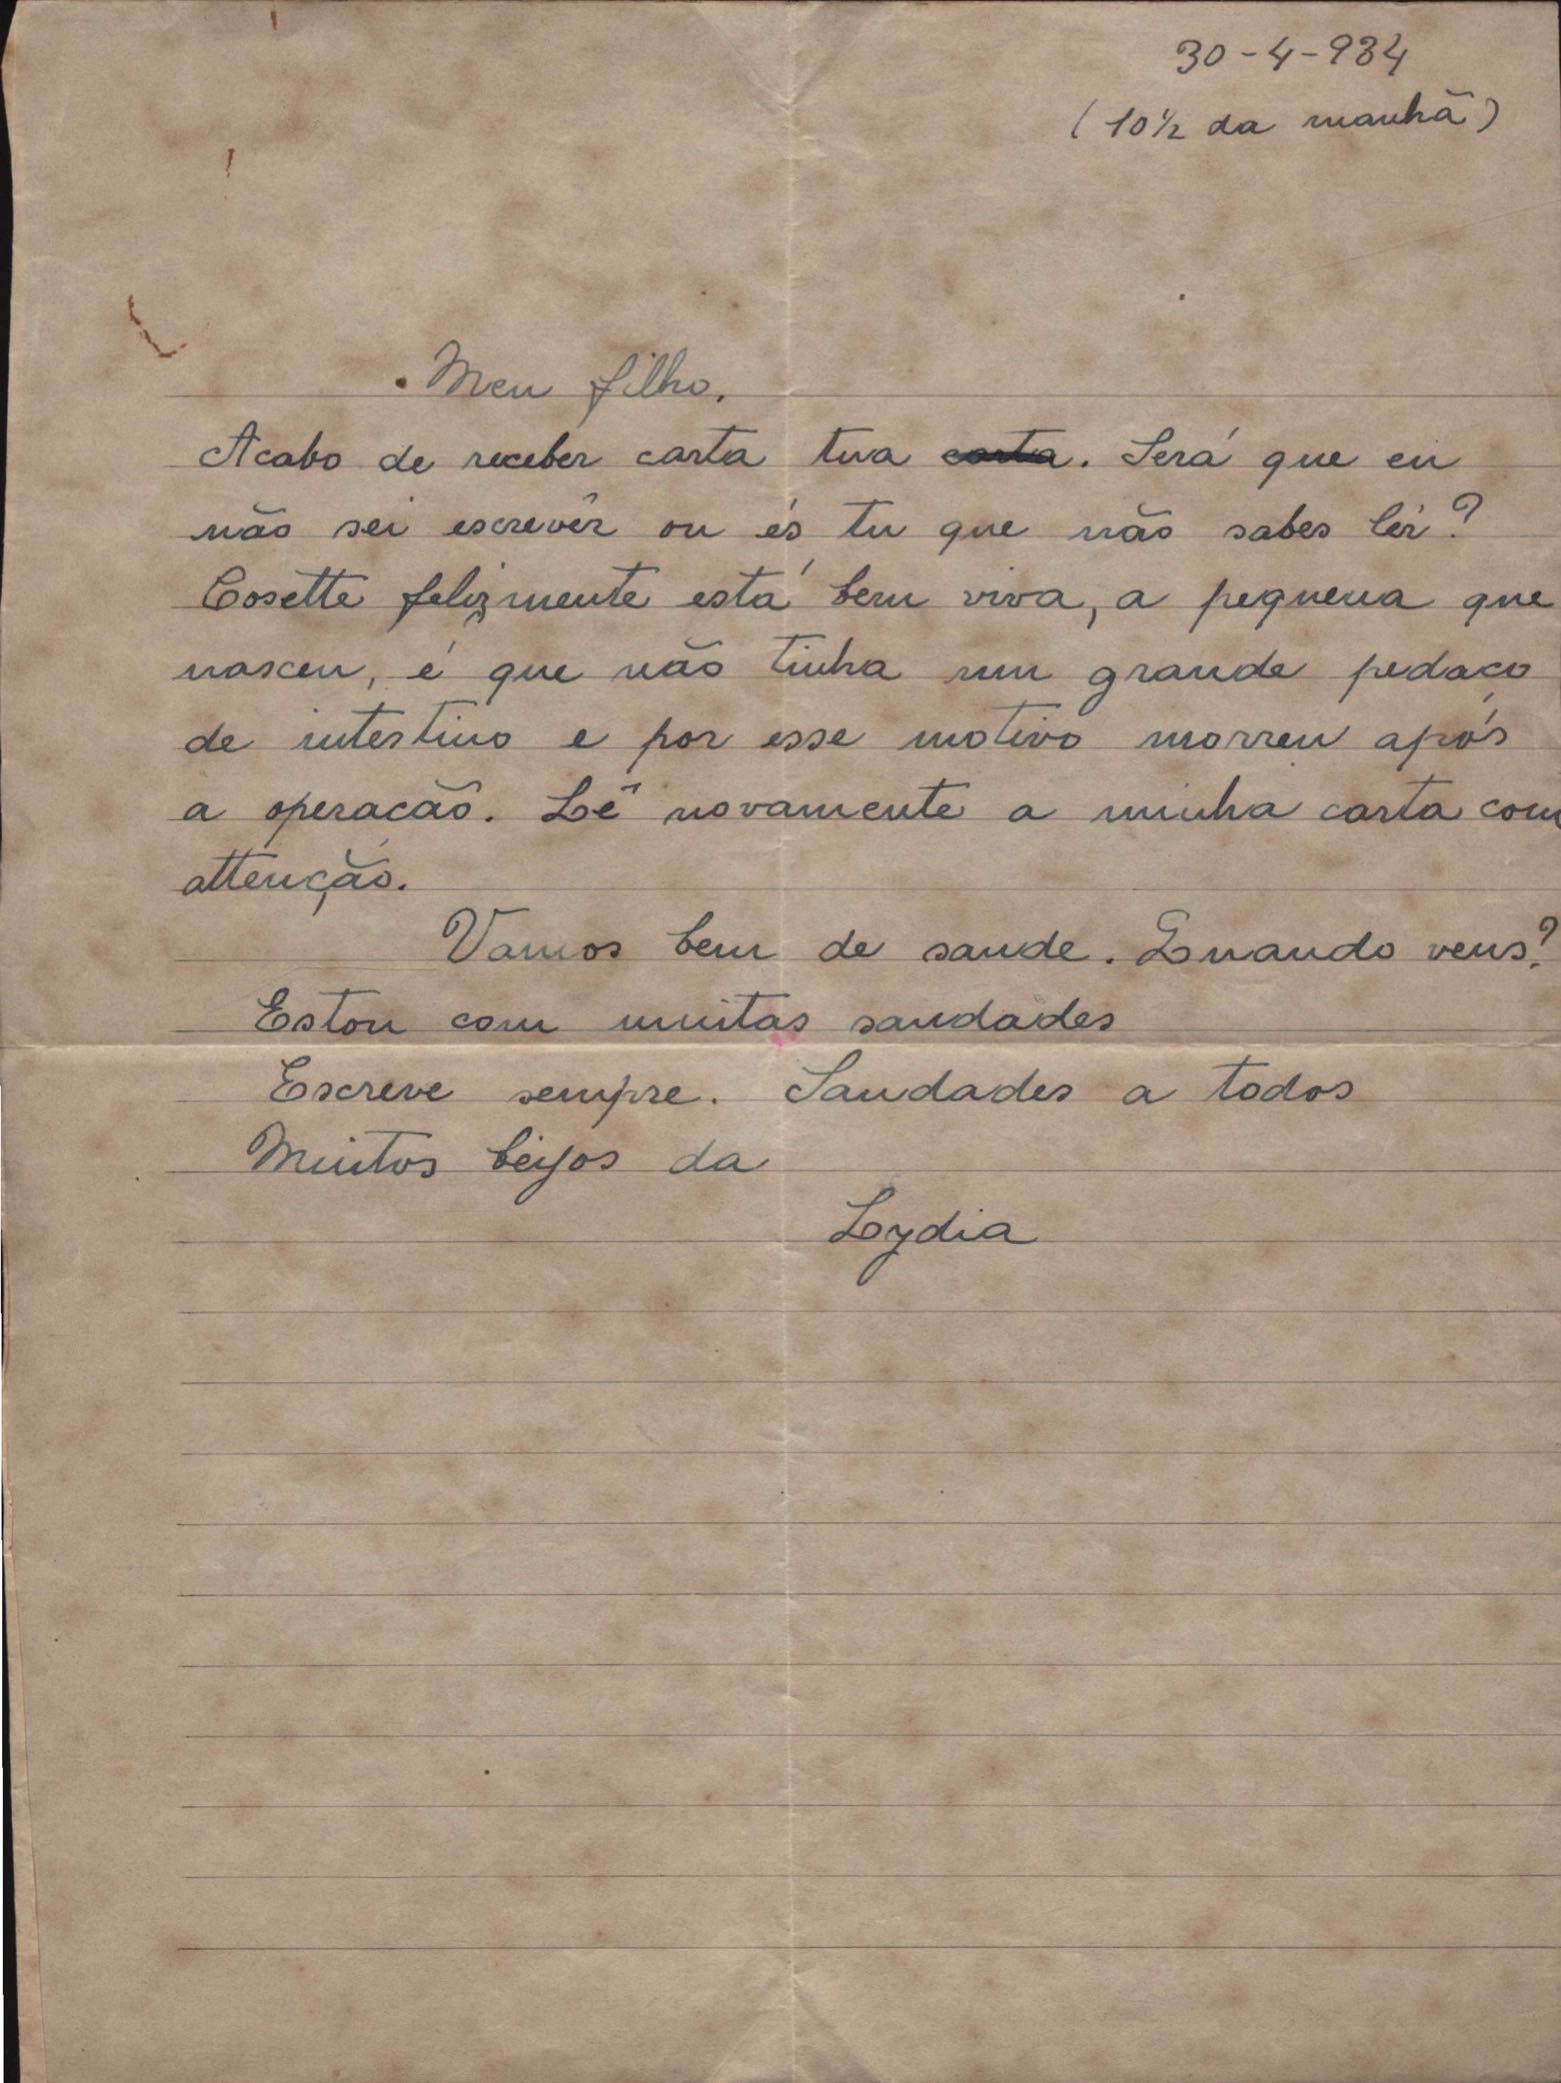 30-4-934
(10½ da manhã)
Meu filho.
Acabo de receber carta tua carta. Será que eu
não sei escrevêr ou és tu que não sabes lêr?
Cosette felizmente está bem viva, a pequena que
nasceu, é que não tinha um grande pedaço
de intestino e por esse motivo morreu após
a operacão. Lê novamente a minha carta com
attenção.
Vamos bem de saude. Quando vens?
Estou com muitas saudades
Escreve sempre. Saudades a todos
Muitos beijos da
Lydia